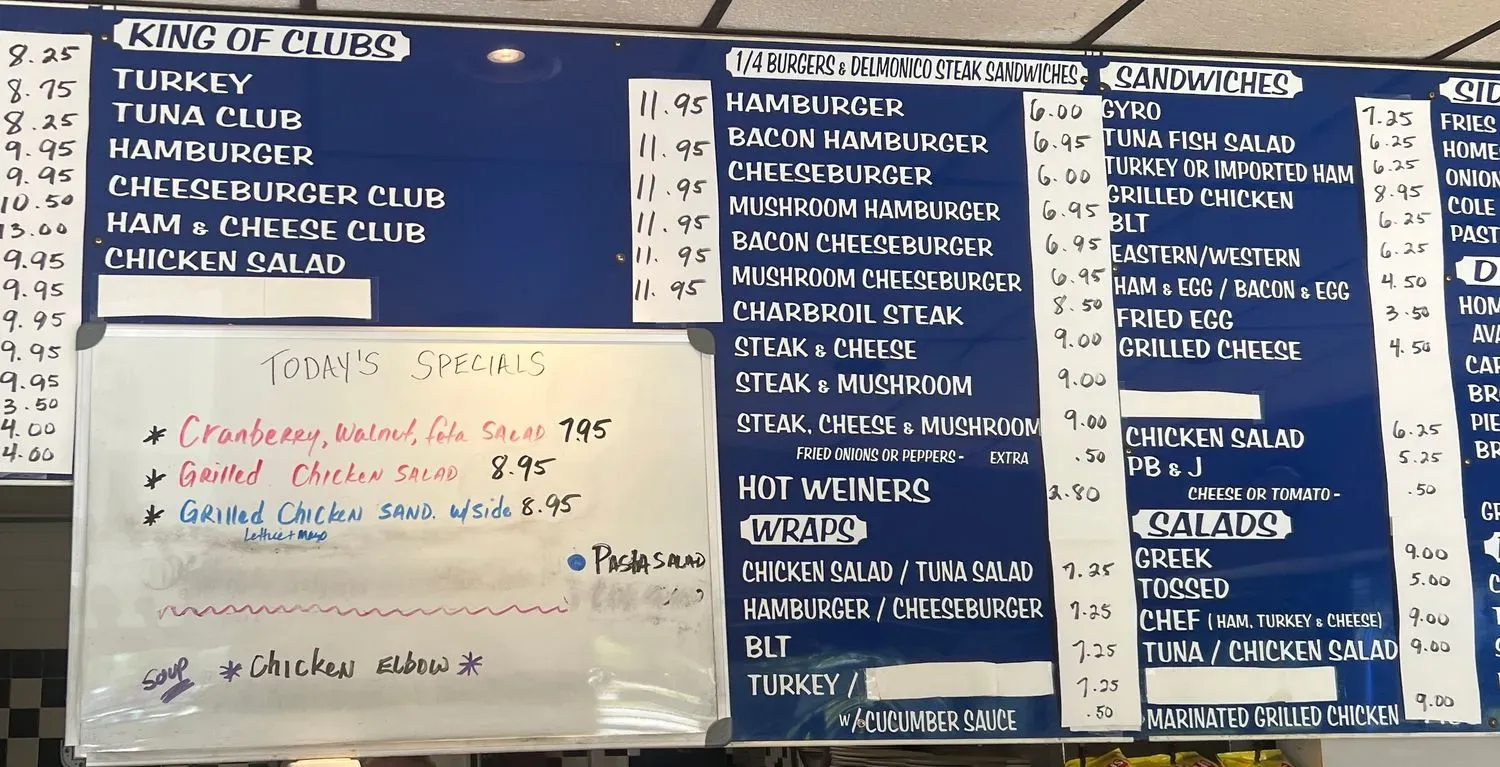 8.25
8.75
8.25
9.95
9.95
10.50
13.00
9.95
9.95
9.95
9.95
9.95
3.50
4.00
4.00
KING OF CLUBS
TURKEY 11.95
TUNA CLUB 11.95
HAMBURGER 11.95
CHEESEBURGER CLUB 11.95
HAM & CHEESE CLUB 11.95
CHICKEN SALAD 11.95
TODAY'S SPECIALS
* Cranberry, Walnut, feta SALAD 7.95
* Grilled Chicken SALAD 8.95
* GRilled Chicken SAND. w/side 8.95
Lettuce + Mayo
PASTA SALAD
SOUP * Chicken Elbow *
1/4 BURGERS & DELMONICO STEAK SANDWICHES
HAMBURGER 6.00
BACON HAMBURGER 6.95
CHEESEBURGER 6.00
MUSHROOM HAMBURGER 6.95
BACON CHEESEBURGER 6.95
MUSHROOM CHEESEBURGER 6.95
CHARBROIL STEAK 8.50
STEAK & CHEESE 9.00
STEAK & MUSHROOM 9.00
STEAK, CHEESE & MUSHROOM 9.00
FRIED ONIONS OR PEPPERS - EXTRA .50
HOT WEINERS 2.80
WRAPS
CHICKEN SALAD / TUNA SALAD 7.25
HAMBURGER / CHEESEBURGER 7.25
BLT 7.25
TURKEY / 7.25
w/ CUCUMBER SAUCE .50
SANDWICHES
GYRO 7.25
TUNA FISH SALAD 6.25
TURKEY OR IMPORTED HAM 6.25
GRILLED CHICKEN 8.95
BLT 6.25
EASTERN/WESTERN 6.25
HAM & EGG / BACON & EGG 4.50
FRIED EGG 3.50
GRILLED CHEESE 4.50
CHICKEN SALAD 6.25
PB & J 5.25
CHEESE OR TOMATO - .50
SALADS
GREEK 9.00
TOSSED 5.00
CHEF (HAM, TURKEY & CHEESE) 9.00
TUNA / CHICKEN SALAD 9.00
MARINATED GRILLED CHICKEN 9.00
SID
FRIES
HOME
ONION
COLE
PAST
D
HOM
AVA
CAR
BRO
PIE
BR
GR